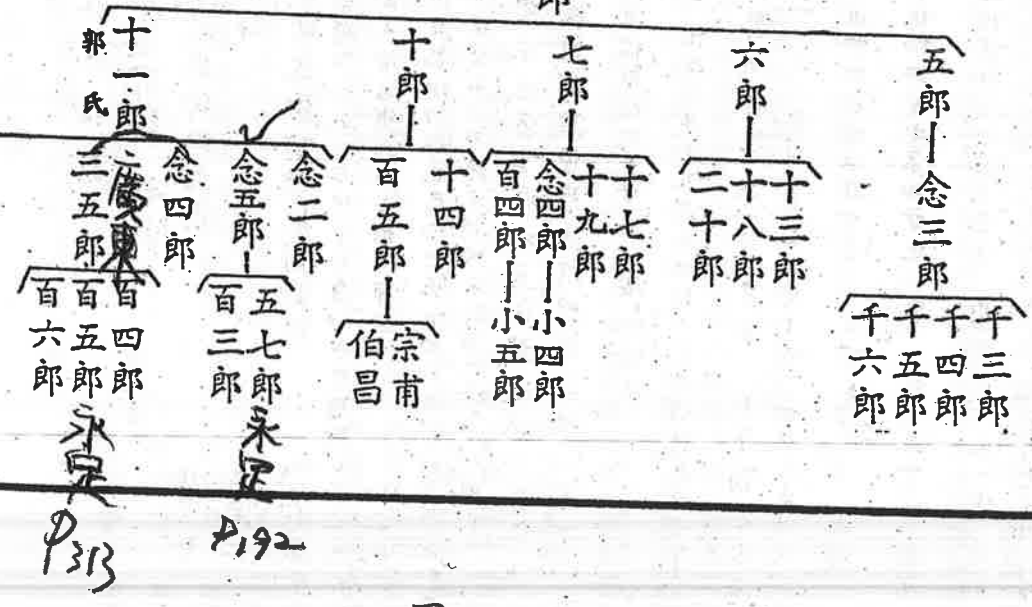 郎
五郎
念三郎
千三郎
千四郎
千五郎
千六郎
六郎
十三郎
十八郎
二十郎
七郎
十七郎
十九郎
念四郎
小四郎
百四郎
小五郎
十郎
十四郎
百五郎
宗甫
伯昌
十一郎
郭氏
念二郎
念五郎
五七郎
百三郎
永定
P192
念四郎
三五郎
廣東
百四郎
百五郎
百六郎
永定
P313